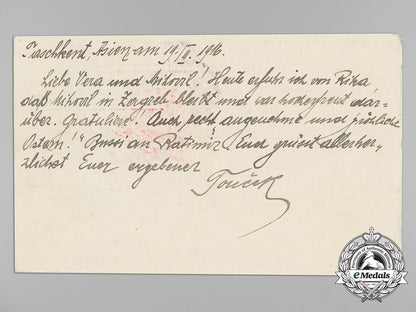 Taschkent, Asien am 19. IV. 1916.
Liebe Vera und Mihovil! Heute erfuhr ich von Rika
daß Mihovil in Zagreb bleibt und war hocherfreut dar-
über. Gratuliere! Auch recht angenehme und fröhliche
Ostern! Bussi an Ratimir. Euch grüsst allerher-
zlichst Euer ergebener
eMedals